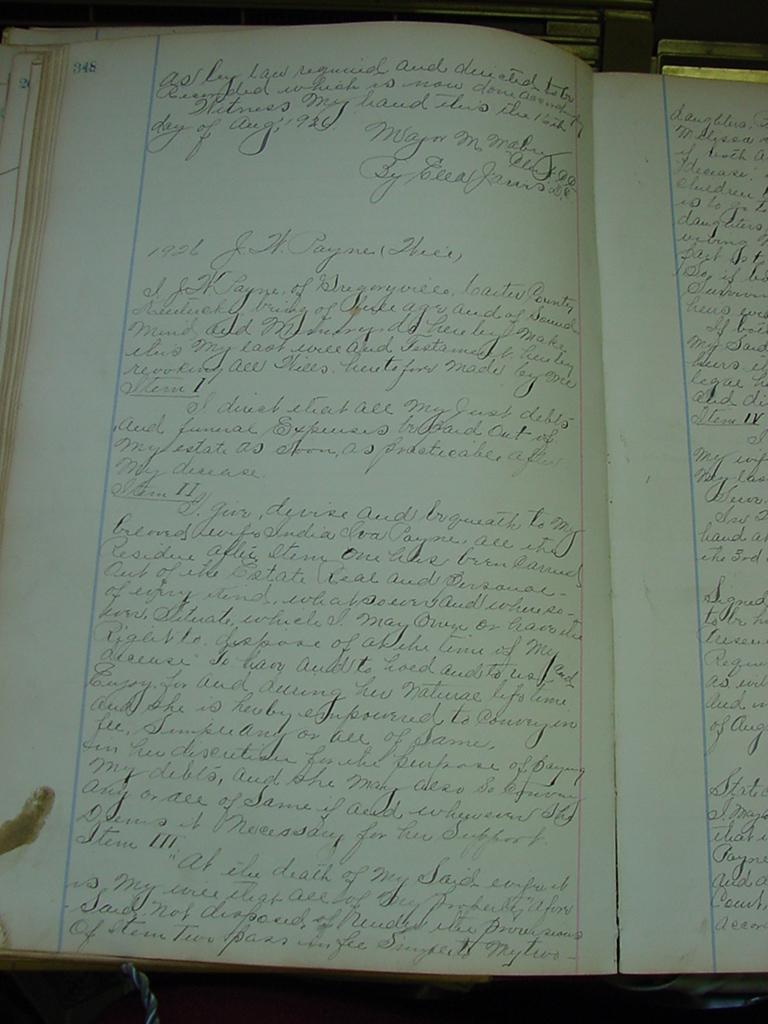 348
as by law required and directed to be
Recorded which is now done accordingly
Witness My hand this the 16th
day of Aug, 1926.
Major M. Mabry
Clerk C.C.C.
By Ella Jarvis D.C.
1926 J. W. Payne (Will)
I J W Payne, of Gregoryville, Carter County,
Kentucky being of Lawful age, and of Sound
Mind and Memory, do hereby Make
this My last will and Testament, hereby
revoking all Wills heretofore made by me
Item I
I direct that all My Just debts
and funeral Expenses be paid out of
My estate as soon as practicable after
My decease.
Item II
I, give, devise and bequeath to My
beloved wife India Iva Payne, all the
Residue after Item One has been Carried
Out of the Estate Real and Personal
of every kind, whatsoever and where so-
ever, Situate, which I May Own or have the
Right to dispose of at the time of My
decease To have and to hold and to use and
Enjoy for and during her Natural life time
And she is hereby empowered to Convey in
fee, Simple any or all of Same,
in her discretion for the purpose of paying
My debts, and she May also So Convey
Any or all of Same if and whenever She
Deems it Necessary for her Support.
Item III
"At the death of My Said wife it
is My will that all of My Property afore
Said Not disposed of Under the provisions
Of Item Two pass in fee Simple to My two
daughters,
Melissa
if both
decease
Children
is to go to
daughters
part
So, if
Surviving
heirs
If both
My Said
heirs
legal
and
Item IV
I
My wife
My las
Serve
hand
the 3rd
Signed
to be
Presence
Reque
as
And
of Aug
State
I, Major
that
Payne
and
Court,
accor